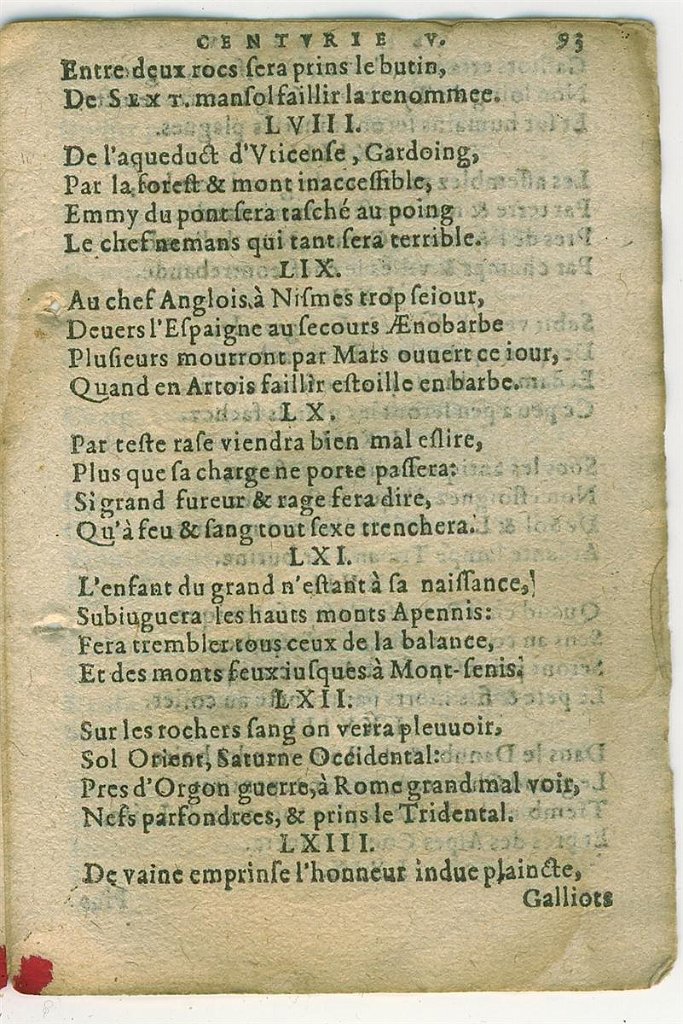 CENTVRIE V. 93
Entre deux rocs sera prins le butin,
De SEXT. mansol faillir la renommee.
LVIII.
De l'aqueduct d'Vticense, Gardoing,
Par la forest & mont inaccessible,
Emmy du pont sera tasché au poing
Le chef nemans qui tant sera terrible.
LIX.
Au chef Anglois à Nismes trop seiour,
Deuers l'Espaigne au secours Ænobarbe
Plusieurs mourront par Mars ouuert ce iour,
Quand en Artois faillir estoille en barbe.
LX.
Par teste rase viendra bien mal eslire,
Plus que sa charge ne porte passera:
Si grand fureur & rage fera dire,
Qu'à feu & sang tout sexe trenchera.
LXI.
L'enfant du grand n'estant à sa naissance,
Subiuguera les hauts monts Apennis:
Fera trembler tous ceux de la balance,
Et des monts feux iusques à Mont-senis.
LXII.
Sur les rochers sang on verra pleuuoir,
Sol Orient, Saturne Occidental:
Pres d'Orgon guerre, à Rome grand mal voir,
Nefs parfondrees, & prins le Tridental.
LXIII.
De vaine emprinse l'honneur indue plaincte,
Galliots